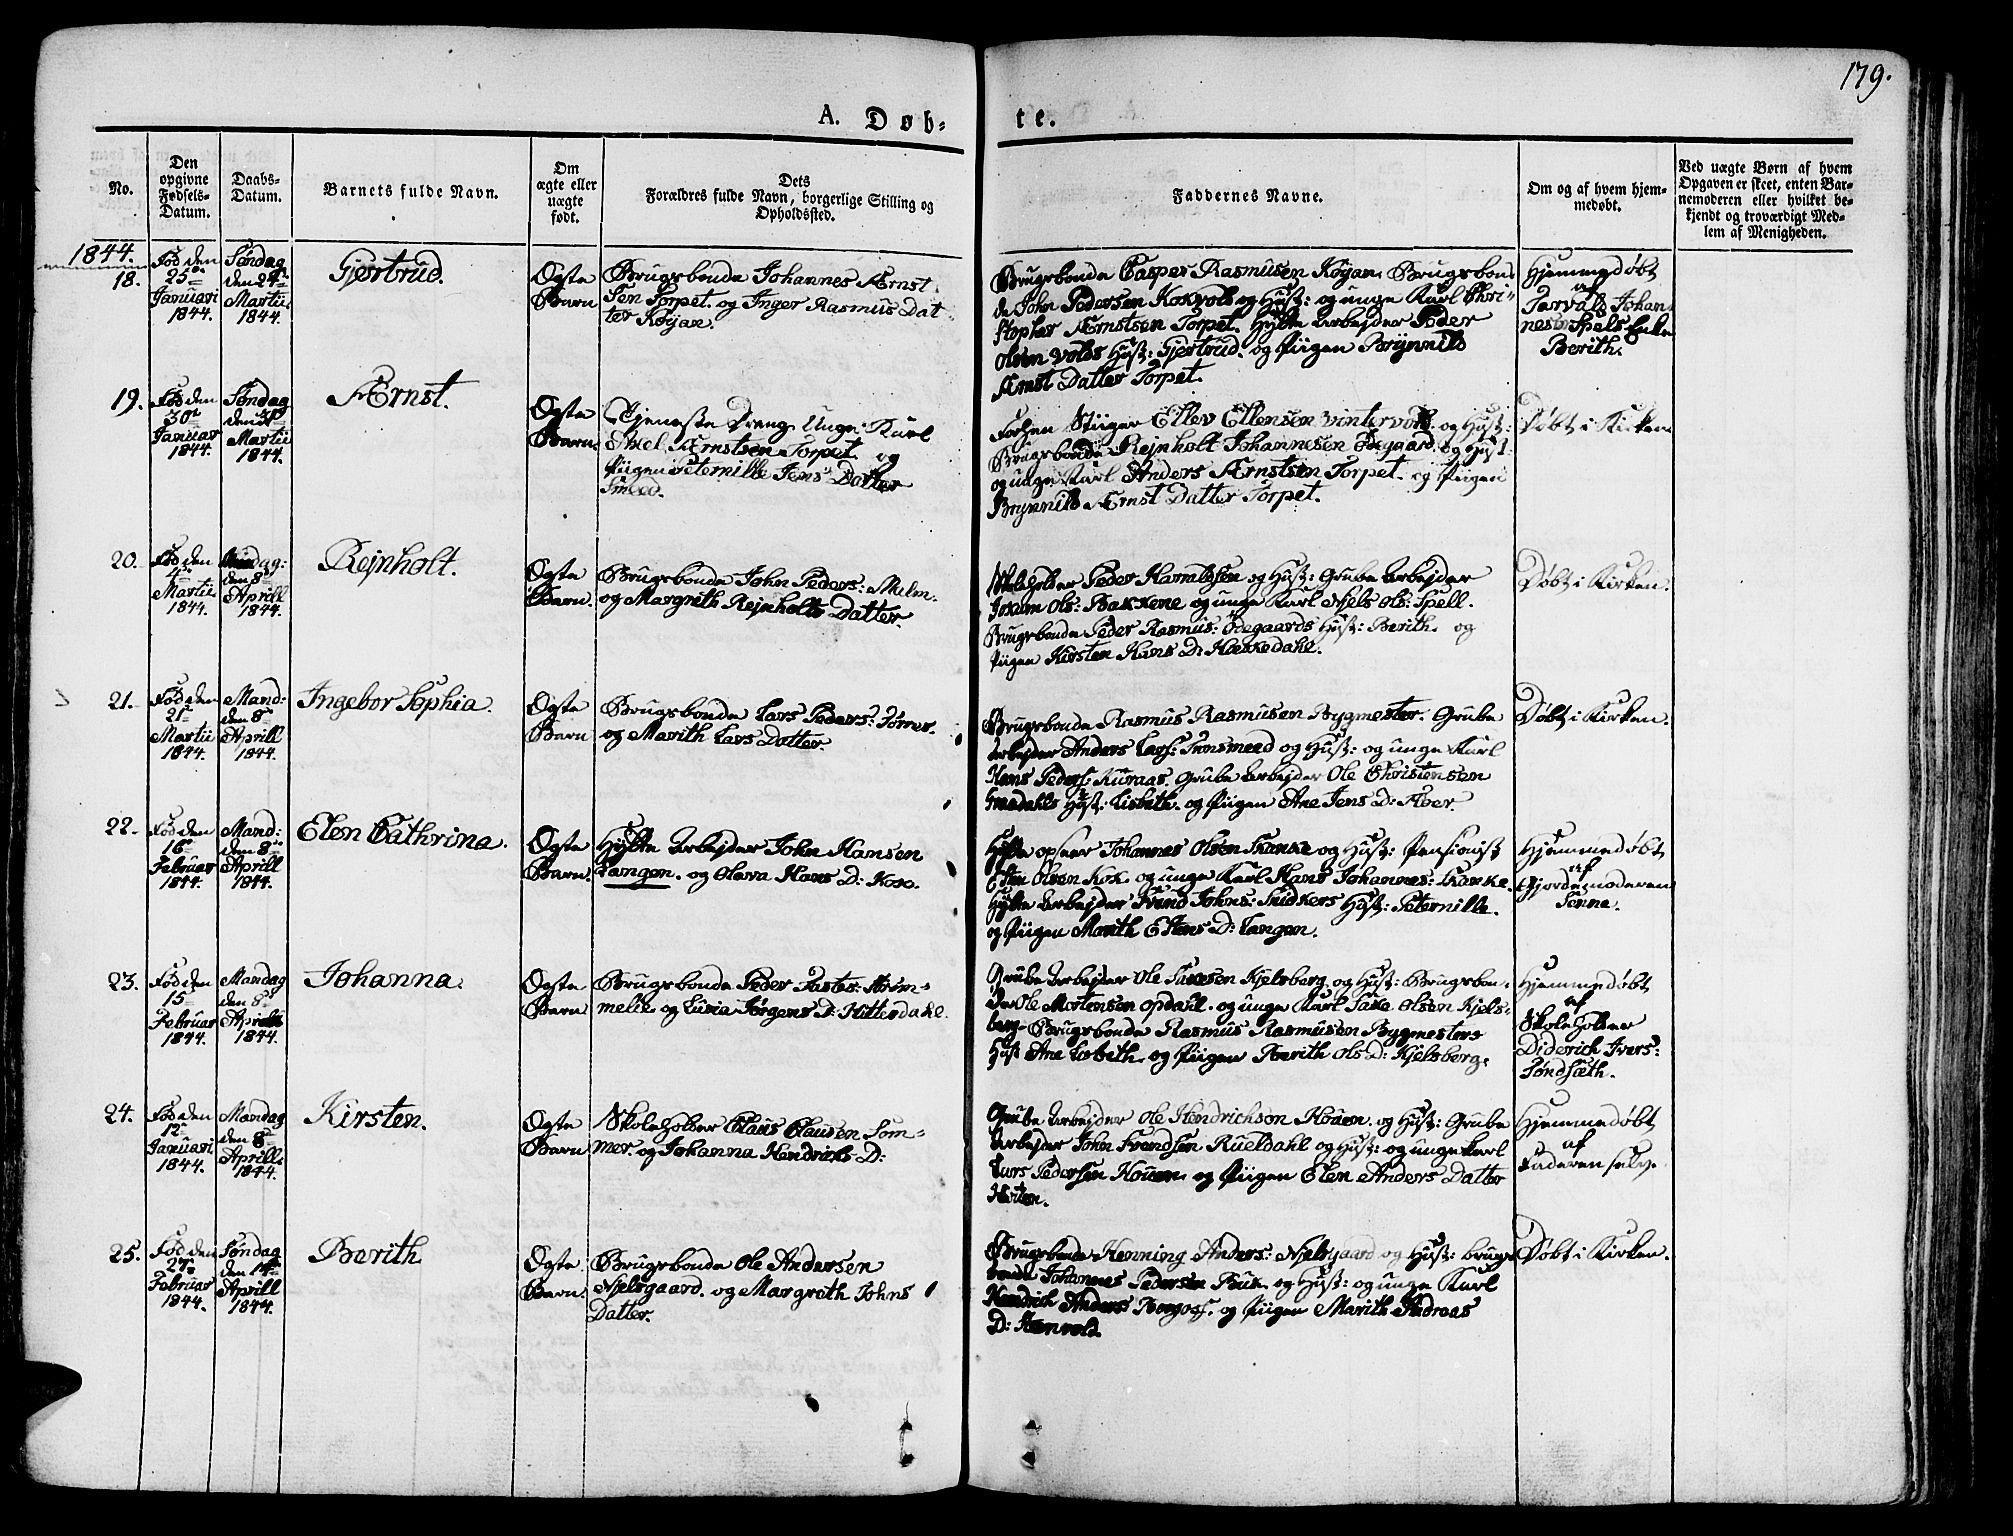 179.
A. Døb-
te.
No.
Den
opgivne
Fødsels-
Datum.
Daabs-
Datum.
Barnets fulde Navn.
Om
ægte eller
uægte
født.
Dets
Forældres fulde Navn, borgerlige Stilling og
Opholdssted.
Faddernes Navne.
Om og af hvem hjem-
medøbt.
Ved uægte Børn af hvem
Opgaven er skeet, enten Bar-
nemoderen eller hvilket be-
kjendt og troværdigt Med-
lem af Menigheden.
1844.
18.
Fød den
25de
Januari
1844.
Søndag
den 24de
Martii
1844.
Gjertrud.
Ægte
Barn
Brugsbonde Johannes Ærnst
Sen Torpet. og Inger Rasmus Dat
ter Køjan.
Brugsbonde Casper Rasmusen Køjan. Brugsbon
de John Pedersen Kokvold og Hust: og unge Karl Chri-
stopher Ærnstsen Torpet. Hytte Arbejder Peder
Olsen Volds Hust: Gjertrud. og Piigen Brynnild
Ærnst Datter Torpet.
Hjemmedøbt
af
Johan
Enke
Berith.
19.
Fød den
30te
Januar
1844.
Søndag
den 31te
Martii
1844.
Ærnst.
Ægte
Barn.
Tjeneste Dreng Unge Karl
Ærnstsen Torpet og
Piigen Peternille Jens Datter
Smed.
Stiiger Ellev Ellensen Vintervold. og Hust:
Brugsbonde Rejnholt Johannesen Ødegaard. og Hust
og unge Karl Anders Ærnstsen Torpet. og Piigen
Brynnild Ærnst Datter Torpet.
Døbt i Kirken
20.
Fød den
4de
Martii
1844.
den 8de
Aprill
1844.
Rejnholt.
Ægte
Barn.
Brugsbonde John Peders: Mælm.
og Margrith Rejnholts Datter.
Skoleholder Peder Harraldsen og Hust: Grube Arbejder
Jokum Ols: Bakkene og unge Karl Njels Ols: Spell.
Brugsbonde Peder Rasmus: Ødegaards Hust: Berith. og
Piigen Kirsten Hans D: Hækkedahl.
Døbt i Kirken.
21.
Fød den
21de
Martii
1844.
Mand:
den 8de
Aprill
1844.
Ingebor Sophia.
Ægte
Barn
Brugsbonde Lars Peders: Tørres.
og Marith Lars Datter
Brugsbonde Rasmus Rasmusen Bygmester. Grube
Arbejder Anders Lars: Tronsmead og Hust: og unge Karl
Hans Peders: Kuraas. Grube Arbejder Ole Christensen
Hust: Lisbeth. og Piigen Ane Jens D: Floer.
Døbt i Kirken.
22.
Fød den
16de
Februar
1844.
Mand:
den 8de
Aprill
1844.
Elen Cathrina.
Ægte
Barn.
Hytte Arbejder John Hansen
Tangen. og Olava Hans D: Kox.
Hytte opseer Johannes Olsen Skanke og Hust: Pensionist
Esten Olsen Kok. og unge Karl Hans Johannes: Skanke.
Hytte Arbejder Svend Johns: Snidkers Hust: Peternille.
og Piigen Marith Estens D: Tangen.
Hjemmedøbt
af
Gjordemoderen
Senne.
23.
Fød den
15de
Februar
1844.
Mandag
den 8de
Aprill
1844.
Johanna.
Ægte
Barn
Brugsbonde Peder Tastes: Strøm-
melie. og Lucia Jørgens D: Hitterdahl.
Grube Arbejder Ole Taresen Kjelsberg. og Hust: Brugsbon-
de Ole Mortensen Opdahl. og unge Karl Tare Olsen Kjels-
berg. Brugsbonde Rasmus Rasmusen Bygmesters
Hust Ane Lisbeth. og Piigen Berith Ols D: Kjelsberg.
Hjemmedøbt
af
Skoleholder
Diderich Ivers:
Tøndsæth.
24.
Fød den
12te
Januari.
1844.
Mandag
den 8de
Aprill.
1844.
Kirsten.
Ægte
Barn
Skoleholder Claus Clausen Som-
mer. og Johanna Hendrichs D:
Grube Arbejder Ole Hendrichsen Houen. og Hust: Grube
Arbejder John Svendsen Rueldahl og Hust: og unge Karl
Lars Pedersen Houen. og Piigen Elen Anders Datter
Houen.
Hjemmedøbt
af
Faderen selv.
25.
Fød den
27de
Februar
1844.
Søndag
den 14de
Aprill
1844.
Berith
Ægte
Barn.
Brugsbonde Ole Andersen
Njelsgaard. og Margreth Johns
Datter.
Brugsbonde Henning Anders: Njelsgaard og Hust: brugs
bonde Johannes Pedersen Buk. og Hust: og unge Karl
Hendrich Anders Bergoss. og Piigen Marith Andreas
D: Henvold.
Døbt i Kirken.